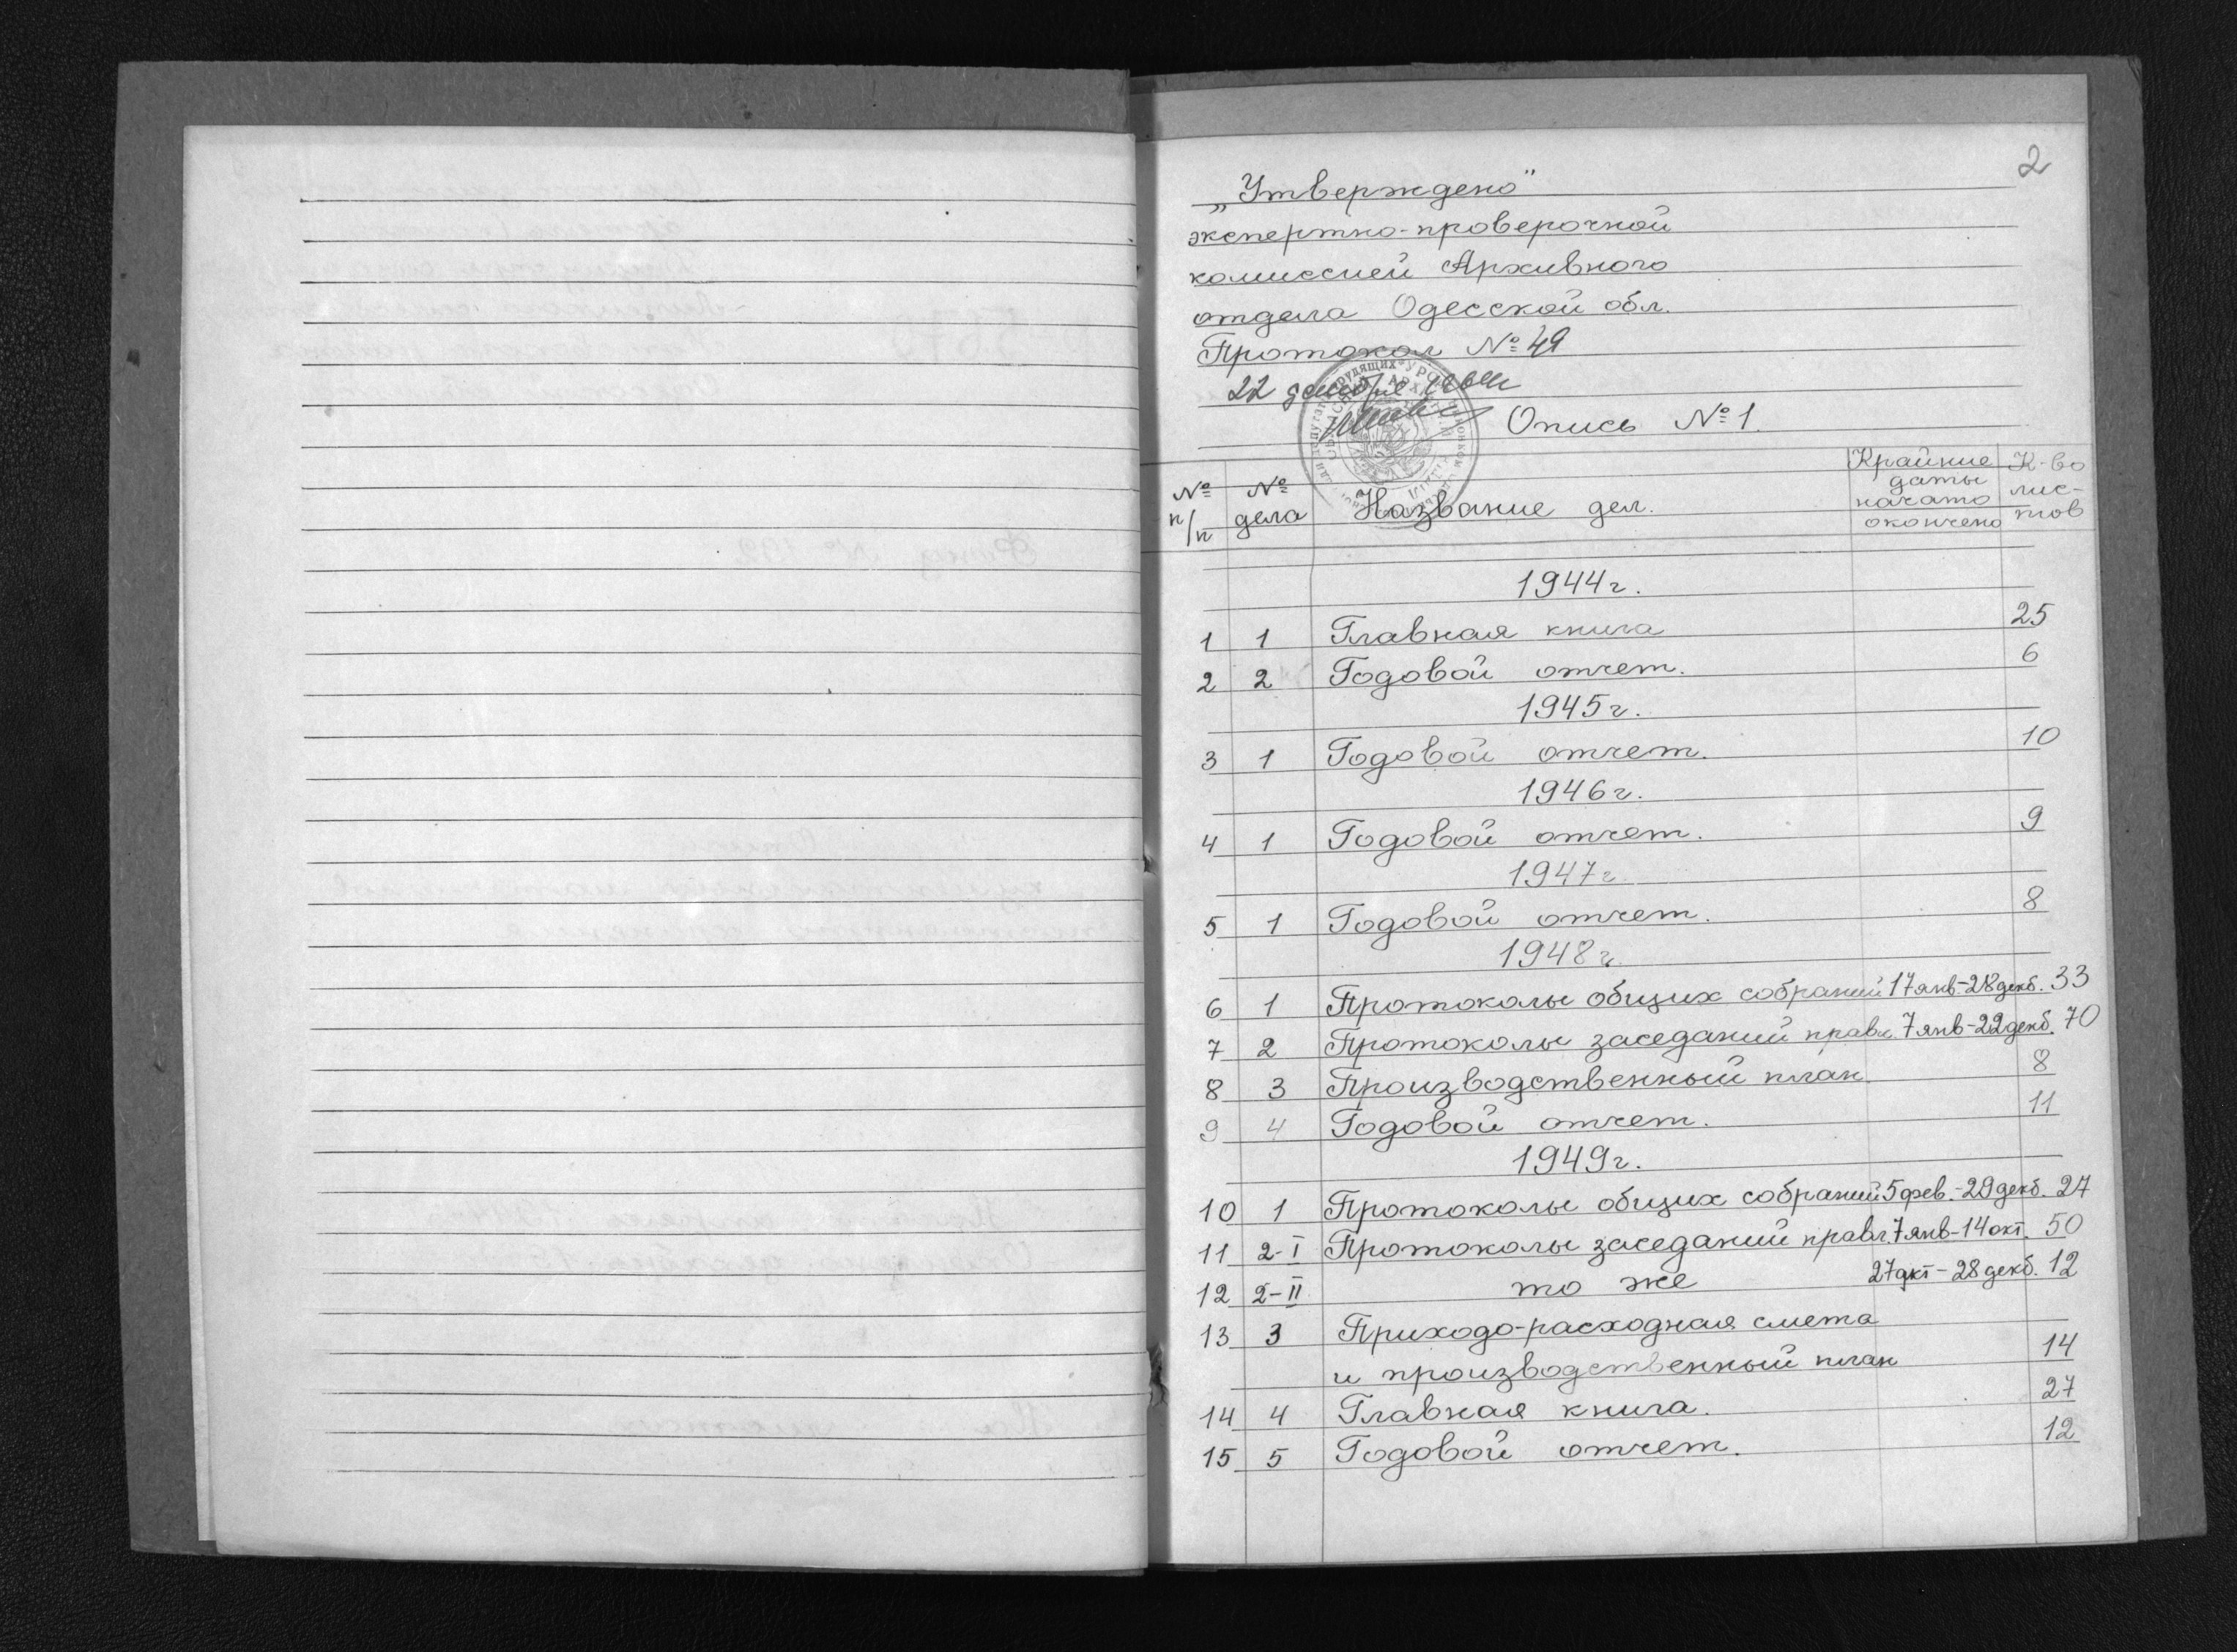 2
„Утверждено"
экспертно-проверочной
комиссией Архивного
отдела Одесской обл.
Протокол № 49
22 декабря
Опись № 1.
№ п/п № дела Название дел. Крайние даты начато окончено К-во лис-тов
1944г.
1 1 Главная книга 25
2 2 Годовой отчет. 6
1945г.
3 1 Годовой отчет. 10
1946г.
4 1 Годовой отчет. 9
1947г.
5 1 Годовой отчет. 8
1948г.
6 1 Протоколы общих собраний 17 янв-28 дек. 33
7 2 Протоколы заседаний правл. 7 янв-22 дек. 70
8 3 Производственный план. 8
9 4 Годовой отчет. 11
1949г.
10 1 Протоколы общих собраний 5 фев.-29 дек. 27
11 2-I Протоколы заседаний правл. 7 янв-14 окт. 50
12 2-II то же 27 окт-28 дек. 12
13 3 Приходо-расходная смета
и производственный план 14
14 4 Главная книга. 27
15 5 Годовой отчет. 12